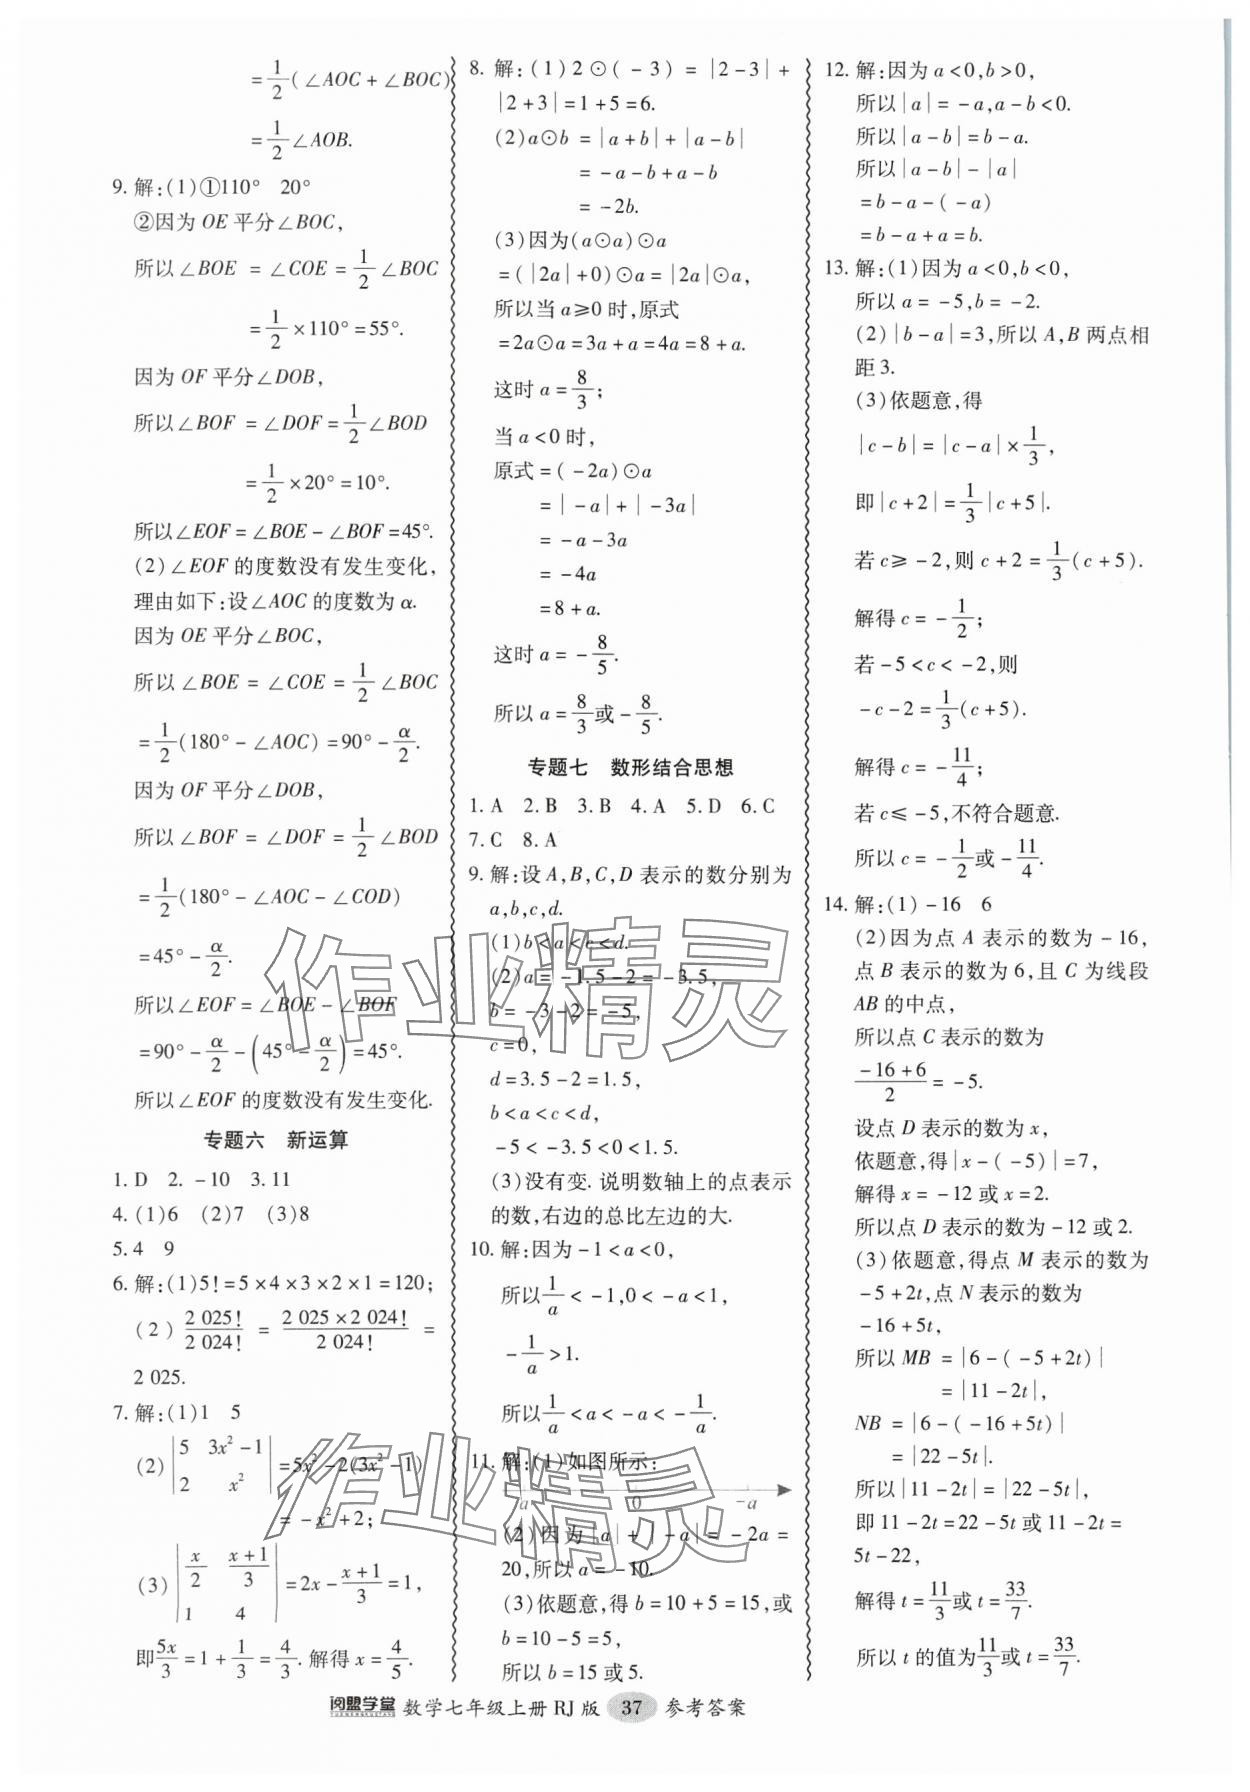 =1/2(∠AOC+∠BOC)
=1/2∠AOB.
9. 解:(1)①110° 20°
②因为 OE 平分∠BOC,
所以∠BOE =∠COE=1/2∠BOC
=1/2×110°=55°.
因为 OF 平分∠DOB,
所以∠BOF =∠DOF=1/2∠BOD
=1/2×20°=10°.
所以∠EOF=∠BOE-∠BOF=45°.
(2)∠EOF 的度数没有发生变化,
理由如下:设∠AOC 的度数为 α.
因为 OE 平分∠BOC,
所以∠BOE =∠COE=1/2∠BOC
=1/2(180°-∠AOC)=90°-α/2.
因为 OF 平分∠DOB,
所以∠BOF =∠DOF=1/2∠BOD
=1/2(180°-∠AOC-∠COD)
=45°-α/2.
所以∠EOF =∠BOE-∠BOF
=90°-α/2-(45°-α/2)=45°.
所以∠EOF 的度数没有发生变化.
专题六 新运算
1. D 2. -10 3. 11
4. (1)6 (2)7 (3)8
5. 4 9
6. 解:(1)5!=5×4×3×2×1=120;
(2) 2 025!/2 024! = 2 025×2 024!/2 024! =
2 025.
7. 解:(1)1 5
(2) |5 3x²-1|
|2 x²| =5x²-2(3x²-1)
=-x²+2;
(3) |x/2 (x+1)/3|
|1 4| =2x-(x+1)/3=1,
即5x/3=1+1/3=4/3. 解得 x=4/5.
8. 解:(1)2⊙(-3)=|2-3|+
|2+3|=1+5=6.
(2)a⊙b=|a+b|+|a-b|
=-a-b+a-b
=-2b.
(3)因为(a⊙a)⊙a
=(|2a|+0)⊙a=|2a|⊙a,
所以当 a≥0 时,原式
=2a⊙a=3a+a=4a=8+a.
这时 a=8/3;
当 a<0 时,
原式=(-2a)⊙a
=|-a|+|-3a|
=-a-3a
=-4a
=8+a.
这时 a=-8/5.
所以 a=8/3或-8/5.
专题七 数形结合思想
1. A 2. B 3. B 4. A 5. D 6. C
7. C 8. A
9. 解:设 A,B,C,D 表示的数分别为
a,b,c,d.
(1)b<a<c<d.
(2)a=-1.5-2=-3.5,
b=-3-2=-5,
c=0,
d=3.5-2=1.5,
b<a<c<d,
-5<-3.5<0<1.5.
(3)没有变. 说明数轴上的点表示
的数,右边的总比左边的大.
10. 解:因为-1<a<0,
所以1/a<-1,0<-a<1,
-1/a>1.
所以1/a<a<-a<-1/a.
11. 解:(1)如图所示:
a 0 -a
(2)因为|a|+|-a|=-2a=
20,所以 a=-10.
(3)依题意,得 b=10+5=15,或
b=10-5=5,
所以 b=15 或 5.
12. 解:因为 a<0,b>0,
所以|a|=-a,a-b<0.
所以|a-b|=b-a.
所以|a-b|-|a|
=b-a-(-a)
=b-a+a=b.
13. 解:(1)因为 a<0,b<0,
所以 a=-5,b=-2.
(2)|b-a|=3,所以 A,B 两点相
距 3.
(3)依题意,得
|c-b|=|c-a|×1/3,
即|c+2|=1/3|c+5|.
若 c≥-2,则 c+2=1/3(c+5).
解得 c=-1/2;
若-5<c<-2,则
-c-2=1/3(c+5).
解得 c=-11/4;
若 c≤-5,不符合题意.
所以 c=-1/2或-11/4.
14. 解:(1)-16 6
(2)因为点 A 表示的数为-16,
点 B 表示的数为 6,且 C 为线段
AB 的中点,
所以点 C 表示的数为
(-16+6)/2=-5.
设点 D 表示的数为 x,
依题意,得|x-(-5)|=7,
解得 x=-12 或 x=2.
所以点 D 表示的数为-12 或 2.
(3)依题意,得点 M 表示的数为
-5+2t,点 N 表示的数为
-16+5t,
所以 MB =|6-(-5+2t)|
=|11-2t|,
NB =|6-(-16+5t)|
=|22-5t|.
所以|11-2t|=|22-5t|,
即 11-2t=22-5t 或 11-2t=
5t-22,
解得 t=11/3或 t=33/7.
所以 t 的值为11/3或 t=33/7.
阅盟学堂 数学七年级上册 RJ 版 37 参考答案
作业精灵
作业精灵